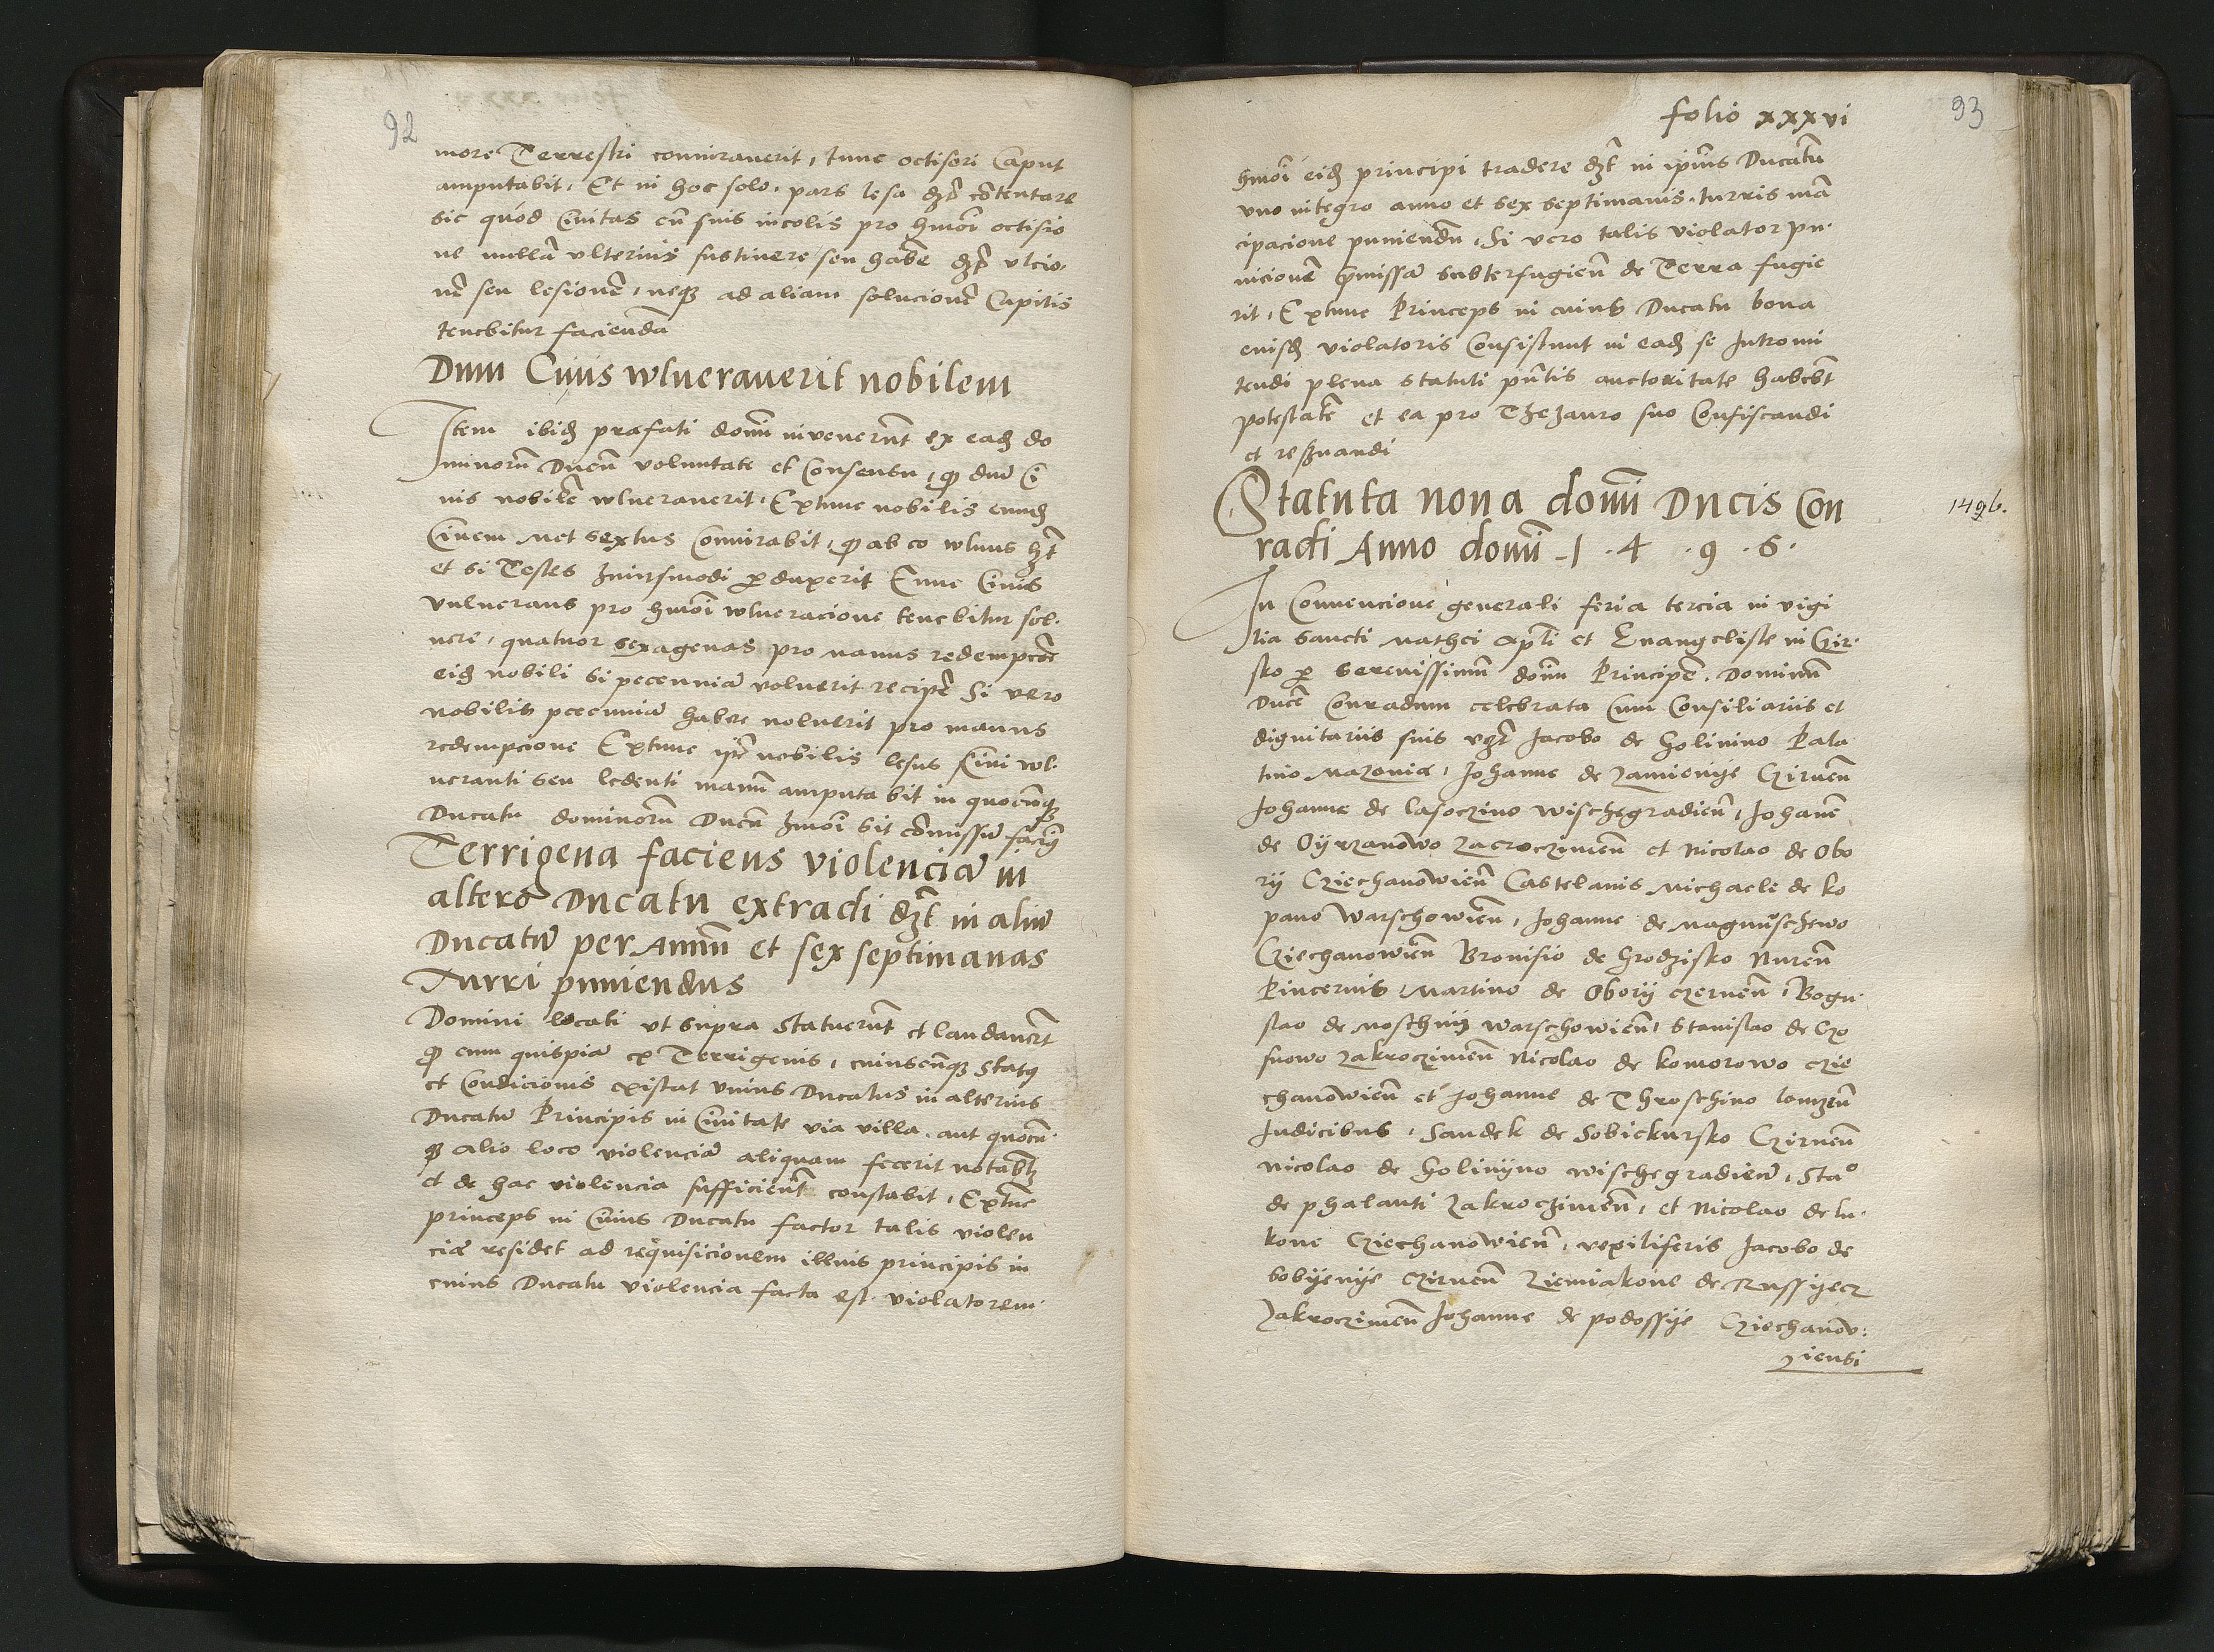 92
more Terrestri coniuraverit, tunc octisori Caput
amputabit. Et in hoc solo. pars lesa dȝt cōtentare
sic quod Civitas cū suis incolis pro hmōi octisio
ne nullā ulterius sustinere seu habē dȝt ulcio-
nē seu lesionē, neqȝ ad aliam solucionē Capitis
tenebitur faciendā
Dum Civis wlneraverit nobilem
Item ibidȝ præfati domī invenerūt ex eadȝ do
minorū Ducū voluntate et Consensu, qɔ dū Ci
vis nobilē wlneraverit. Extunc nobilis eundȝ
Civem met sextus Coniurabit, qɔ ab eo wlnus hȝt
et si Testes huiusmodi ꝑduxerit Tunc Civis
vulnerans pro hmōi wlneracione tenebitur sol-
vere, quatuor sexagenas pro manus redempcōe
eidȝ nobili si peccuniā voluerit recipē Si vero
nobilis peccuniā habere noluerit pro manus
redempcione Extunc ip̄e nobilis lesus Civi wl-
neranti seu ledenti manū amputabit in quocūqȝ
Ducatu dominorū Ducū hmōi sit cōmissū
Terrigena faciens violenciā in
altero Ducatu extradi dȝt in aliū
Ducatū per Annū et sex septimanas
Turri puniendus
Domini locati ut supra statuerūt et laudavert
qɔ cum quispiā ex Terrigenis, cuiuscūqȝ statꝰ
et Condicionis existat unius Ducatus in alterius
Ducatū Principis in Civitate via villa. aut quocū-
qȝ alio loco violenciā aliquam fecerit notabłȝ
et de hac violencia sufficient constabit, Extūc
princeps in Cuius Ducatu factor talis violen
ciæ residet ad requisicionem illius principis in
cuius Ducatu violencia facta est. violatorem
folio xxxvi
93
hmōi eidȝ principi tradere dȝt in ipīus Ducatu
uno integro anno et sex septimanis. turris mā
cipacione puniendū. Si vero talis violator pu-
nicionē p̄missā subterfugien̄ de Terra fugie
rit, Extunc Princeps in cuius Ducatu bona
eiusdȝ violatoris Consistunt in eadȝ se Intromi
tendi plena statuti pn̄tis auctoritate habebt
potestatē et ea pro Thezauro suo Confiscandi
et reservandi
Statuta nova domī Ducis Con
radi Anno domī 1.4.9.6.
1496.
In Convencione generali feria tercia in vigi
lia sancti Mathei apłi et Evangeliste in Cir-
sko ꝑ serenissimū domī Principē. Dominū
Ducē Conradum celebrata Cum Consiliariis et
dignitariis suis vȝt Jacobo de Golinino Pala
tino Mazoviæ, Johanne de Zamienije Czirnen̄
Johanne de Lasoczino wischegradien̄, Johanē
de Oyrzanowo Zacroczimen̄ et Nicolao de Obo
rij Cziechanowien̄ Castelanis Michaele de Ko
pano Warschowien̄, Johanne de Magnuschewo
Cziechanowien̄ Bronisio de Grodzisko Nuren̄
Pincernis, Martino de Oborij czernen̄, Bogu-
slao de Moschnij Warschowien̄, Stanislao de Czo
snowo Zakroczimen̄ Nicolao de Komorowo Czie
chanowien̄ et Johanne de Throschino Lomzen̄
Judicibus, Sandek de Sobiekursko Czirnen̄
Nicolao de Golinijno wischegradien̄, Stao
de phalanti Zakroczimen̄, et Nicolao de Lu-
kone Cziechanowien̄, vexiliferis Jacobo de
bobijenije Czirnen̄ Ziemiakone de Russijecz
Zakroczimen̄ Johanne de podossije Cziechanow:
ziensi